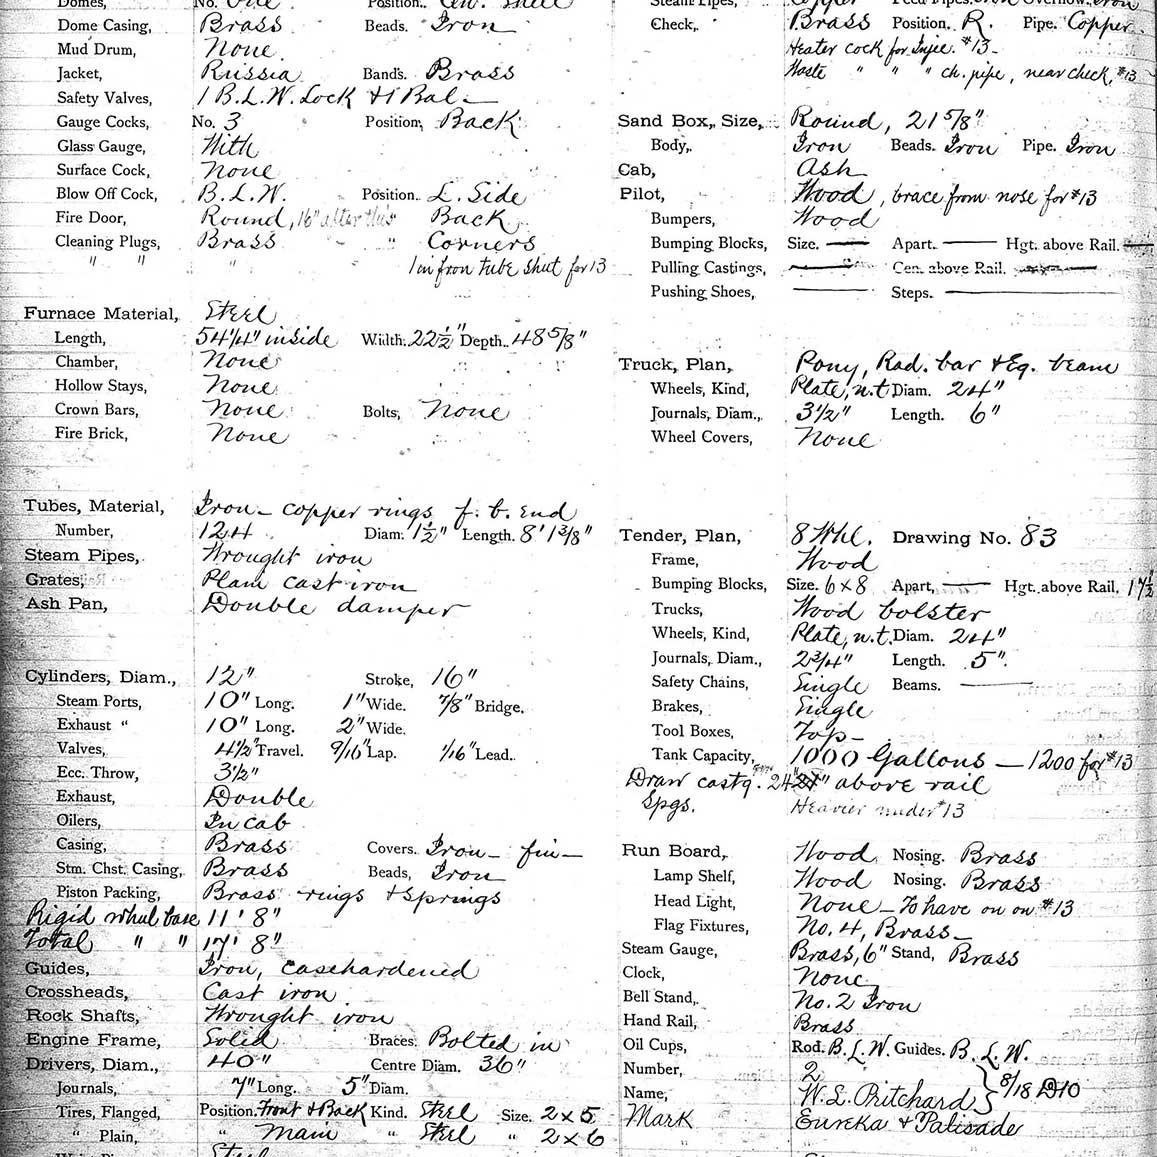 Domes, No. One Position. Cen. Shell
Dome Casing, Brass Beads. Iron
Mud Drum, None.
Jacket, Russia Bands. Brass
Safety Valves, 1 B.L.W. Lock & 1 Bal —
Gauge Cocks, No. 3 Position, Back
Glass Gauge, With
Surface Cock, None
Blow Off Cock, B.L.W. Position. L. Side
Fire Door, Round, 16" after this Back
Cleaning Plugs, Brass " Corners
" " " 1 in fron tube sheet for 13
Furnace Material, Steel
Length, 54 1/4" inside Width. 22 1/2" Depth. 48 5/8"
Chamber, None
Hollow Stays, None
Crown Bars, None Bolts, None
Fire Brick, None
Tubes, Material, Iron – copper rings f. b. end
Number, 124 Diam. 1 1/2" Length. 8' 1 3/8"
Steam Pipes, Wrought iron
Grates, Plain cast iron
Ash Pan, Double damper
Cylinders, Diam., 12" Stroke, 16"
Steam Ports, 10" Long. 1" Wide. 7/8" Bridge.
Exhaust " 10" Long. 2" Wide.
Valves, 4 1/2" Travel. 9/16" Lap. 1/16" Lead.
Ecc. Throw, 3 1/2"
Exhaust, Double
Oilers, In cab
Casing, Brass Covers. Iron – fin –
Stm. Chst. Casing, Brass Beads, Iron
Piston Packing, Brass rings & Springs
Rigid wheel base 11' 8"
Total " " 17' 8"
Guides, Iron, casehardened
Crossheads, Cast iron
Rock Shafts, Wrought iron
Engine Frame, Solid Braces. Bolted in
Drivers, Diam., 40" Centre Diam. 36"
Journals, 7" Long. 5" Diam.
Tires, Flanged, Position. Front & Back Kind. Steel Size. 2 x 5
" Plain, " Main " Steel " 2 x 6
Steel
Steam Pipes, Copper Feed Pipes. Iron Overflow. Iron
Check, Brass Position. R. Pipe. Copper.
Heater cock for Injec. #13 –
Waste " " " ch. pipe, near check, #13
Sand Box, Size, Round, 21 5/8"
Body, Iron Beads. Iron Pipe. Iron
Cab, Ash
Pilot, Wood, brace from nose for #13
Bumpers, Wood
Bumping Blocks, Size. — Apart. — Hgt. above Rail. —
Pulling Castings, — Cen. above Rail. —
Pushing Shoes, — Steps. —
Truck, Plan, Pony, Rad. bar & Eq. beam
Wheels, Kind, Plate, n.t. Diam. 24"
Journals, Diam., 3 1/2" Length. 6"
Wheel Covers, None
Tender, Plan, 8 Whl. Drawing No. 83
Frame, Wood
Bumping Blocks, Size. 6 x 8 Apart, — Hgt. above Rail. 17 1/2
Trucks, Wood bolster
Wheels, Kind, Plate, n.t. Diam. 24"
Journals, Diam., 2 3/4" Length. 5".
Safety Chains, Single Beams. —
Brakes, Single
Tool Boxes, Top –
Tank Capacity, 1000 Gallons – 1200 for #13
Draw castg. 24" above rail
Spgs. Heavier under #13
Run Board, Wood Nosing. Brass
Lamp Shelf, Wood Nosing. Brass
Head Light, None – To have on on #13
Flag Fixtures, No. 4, Brass –
Steam Gauge, Brass, 6" Stand, Brass
Clock, None
Bell Stand, No. 2 Iron
Hand Rail, Brass
Oil Cups, Rod. B.L.W. Guides. B.L.W.
Number, 2
Name, W. L. Pritchard } 8/18 1910
Mark Eureka & Palisade